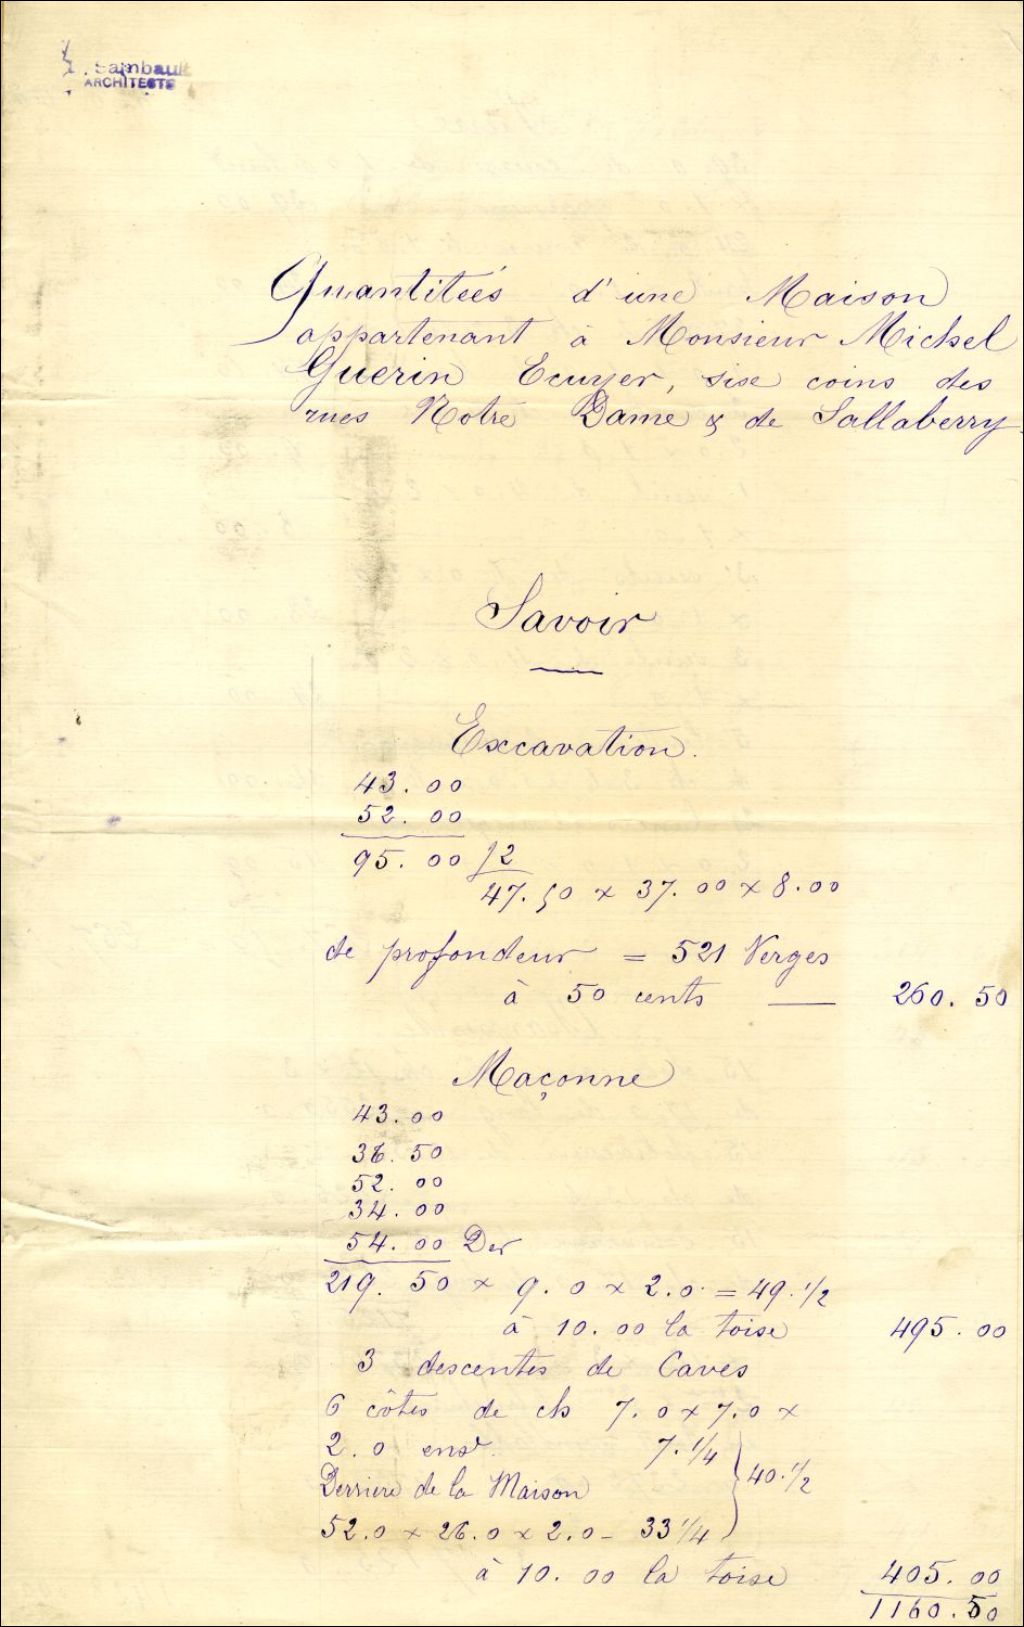 Sambault
ARCHITECTE
Quantiteés d'une Maison
appartenant à Monsieur Michel
Guerin Ecuyer, sise coins des
rues Notre Dame & de Sallaberry
Savoir
Excavation.
43.00
52.00
95.00 /2
47.50 x 37.00 x 8.00
de profondeur = 521 Verges
à 50 cents — 260.50
Maçonne
43.00
36.50
52.00
34.00
54.00 Der
219.50 x 9.0 x 2.0 = 49.1/2
à 10.00 la toise 495.00
3 descentes de Caves
6 côtés de ch 7.0 x 7.0 x
2.0 ensr. 7.1/4
40.1/2
Derriere de la Maison
52.0 x 26.0 x 2.0 - 33 1/4
à 10.00 la toise 405.00
1160.50